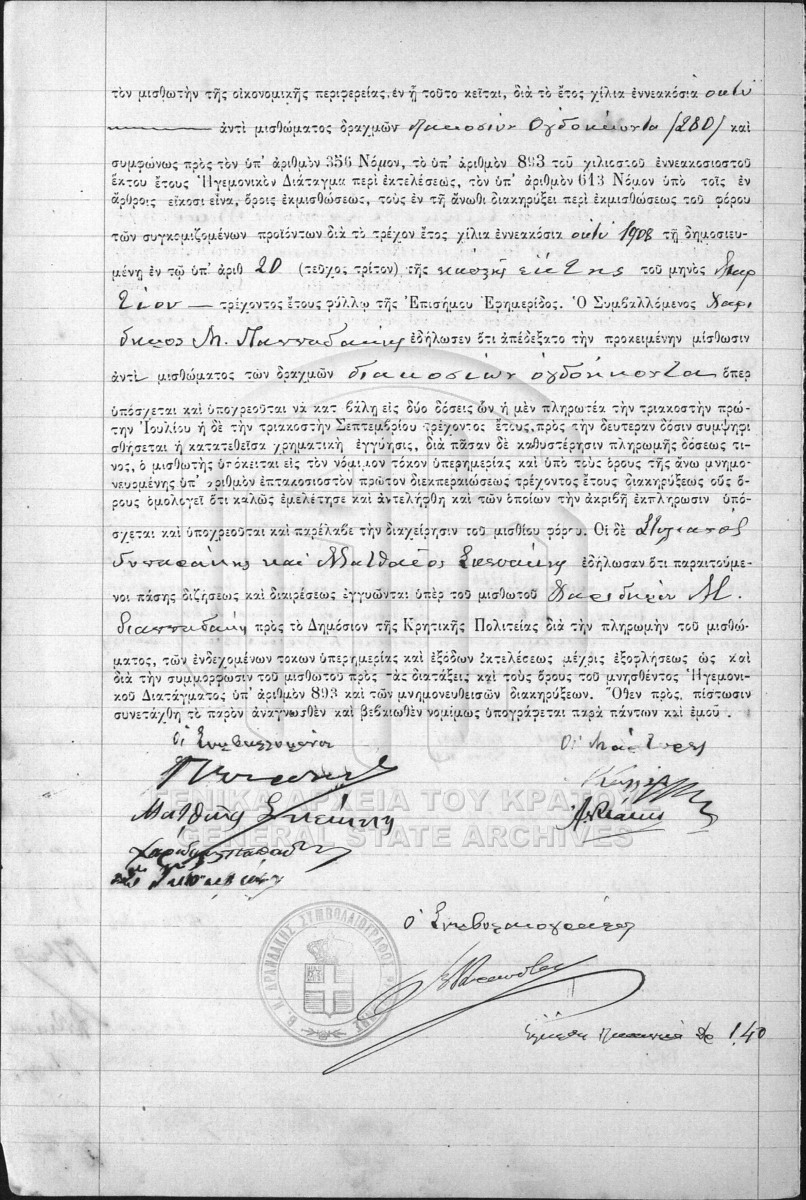 τὸν μισθωτὴν τῆς οἰκονομικῆς περιφερείας, ἐν ᾗ τοῦτο κεῖται, διὰ τὸ ἔτος χίλια ἐννεακόσια ὀκτὼ
ἀντὶ μισθώματος δραχμῶν διακοσίων Ὀγδοήκοντα (280) καὶ
συμφώνως πρὸς τὸν ὑπ' ἀριθμὸν 356 Νόμον, τὸ ὑπ' ἀριθμὸν 893 τοῦ χιλιοστοῦ ἐννεακοσιοστοῦ
ἕκτου ἔτους Ἡγεμονικὸν Διάταγμα περὶ ἐκτελέσεως, τὸν ὑπ' ἀριθμὸν 613 Νόμον ὑπὸ τοῖς ἐν
ἄρθροις εἴκοσι εἶνα, ὅροις ἐκμισθώσεως, τοὺς ἐν τῇ ἄνωθι διακηρύξει περὶ ἐκμισθώσεως τοῦ φόρου
τῶν συγκομιζομένων προϊόντων διὰ τὸ τρέχον ἔτος χίλια ἐννεακόσια ὀκτὼ 1908 τῇ δημοσιευ-
μένῃ ἐν τῷ ὑπ' ἀριθ 20 (τεῦχος τρίτον) τῆς εἰκάτης τοῦ μηνὸς Μαρ
τίου — τρέχοντος ἔτους φύλλῳ τῆς Ἐπισήμου Ἐφημερίδος. Ὁ Συμβαλλόμενος Χαρί
δημος Μ. Παππαδάκης ἐδήλωσεν ὅτι ἀπεδέξατο τὴν προκειμένην μίσθωσιν
ἀντὶ μισθώματος τῶν δραχμῶν διακοσίων ὀγδοήκοντα ὅπερ
ὑπόσχεται καὶ ὑποχρεοῦται νὰ κατ βάλῃ εἰς δύο δόσεις ὧν ἡ μὲν πληρωτέα τὴν τριακοστὴν πρώ-
την Ἰουλίου ἡ δὲ τὴν τριακοστὴν Σεπτεμβρίου τρέχοντος ἔτους, πρὸς τὴν δευτεραν δόσιν συμψηφι
σθήσεται ἡ κατατεθεῖσα χρηματικὴ ἐγγύησις, διὰ πᾶσαν δὲ καθυστέρησιν πληρωμῆς δόσεως τι-
νος, ὁ μισθωτὴς ὑπόκειται εἰς τὸν νόμιμον τόκον ὑπερημερίας καὶ ὑπὸ τοὺς ὅρους τῆς ἄνω μνημο-
νευομένης ὑπ' ἀριθμὸν ἑπτακοσιοστὸν πρῶτον διεκπεραιώσεως τρέχοντος ἔτους διακηρύξεως οὓς ὅ-
ρους ὁμολογεῖ ὅτι καλῶς ἐμελέτησε καὶ ἀντελήφθη καὶ τῶν ὁποίων τὴν ἀκριβῆ ἐκπλήρωσιν ὑπό-
σχεται καὶ ὑποχρεοῦται καὶ παρέλαβε τὴν διαχείρησιν τοῦ μισθίου φόρου. Οἱ δὲ Στυλιανὸς
καὶ Ματθαῖος ἐδήλωσαν ὅτι παραιτούμε-
νοι πάσης διζήσεως καὶ διαιρέσεως ἐγγυῶνται ὑπὲρ τοῦ μισθωτοῦ Χαριδήμου Μ.
Παππαδάκη πρὸς τὸ Δημόσιον τῆς Κρητικῆς Πολιτείας διὰ τὴν πληρωμὴν τοῦ μισθώ-
ματος, τῶν ἐνδεχομένων τοκων ὑπερημερίας καὶ ἐξόδων ἐκτελέσεως μέχρις ἐξοφλήσεως ὡς καὶ
διὰ τὴν συμμόρφωσιν τοῦ μισθωτοῦ πρὸς τὰς διατάξεις καὶ τοὺς ὅρους τοῦ μνησθέντος Ἡγεμονι-
κοῦ Διατάγματος ὑπ' ἀριθμὸν 893 καὶ τῶν μνημονευθεισῶν διακηρύξεων. Ὅθεν πρὸς πίστωσιν
συνετάχθη τὸ παρὸν ἀναγνωσθὲν καὶ βεβαιωθὲν νομίμως ὑπογράφεται παρὰ πάντων καὶ ἐμοῦ.
οἱ Συμβαλλόμενοι Οἱ Μάρτυρες
Ματθαῖος
ΓΕΝΙΚΑ ΑΡΧΕΙΑ ΤΟΥ ΚΡΑΤΟΥΣ
GENERAL STATE ARCHIVES
ὁ Συμβολαιογράφος
ΣΥΜΒΟΛΑΙΟΓΡΑΦΟΣ
1,40